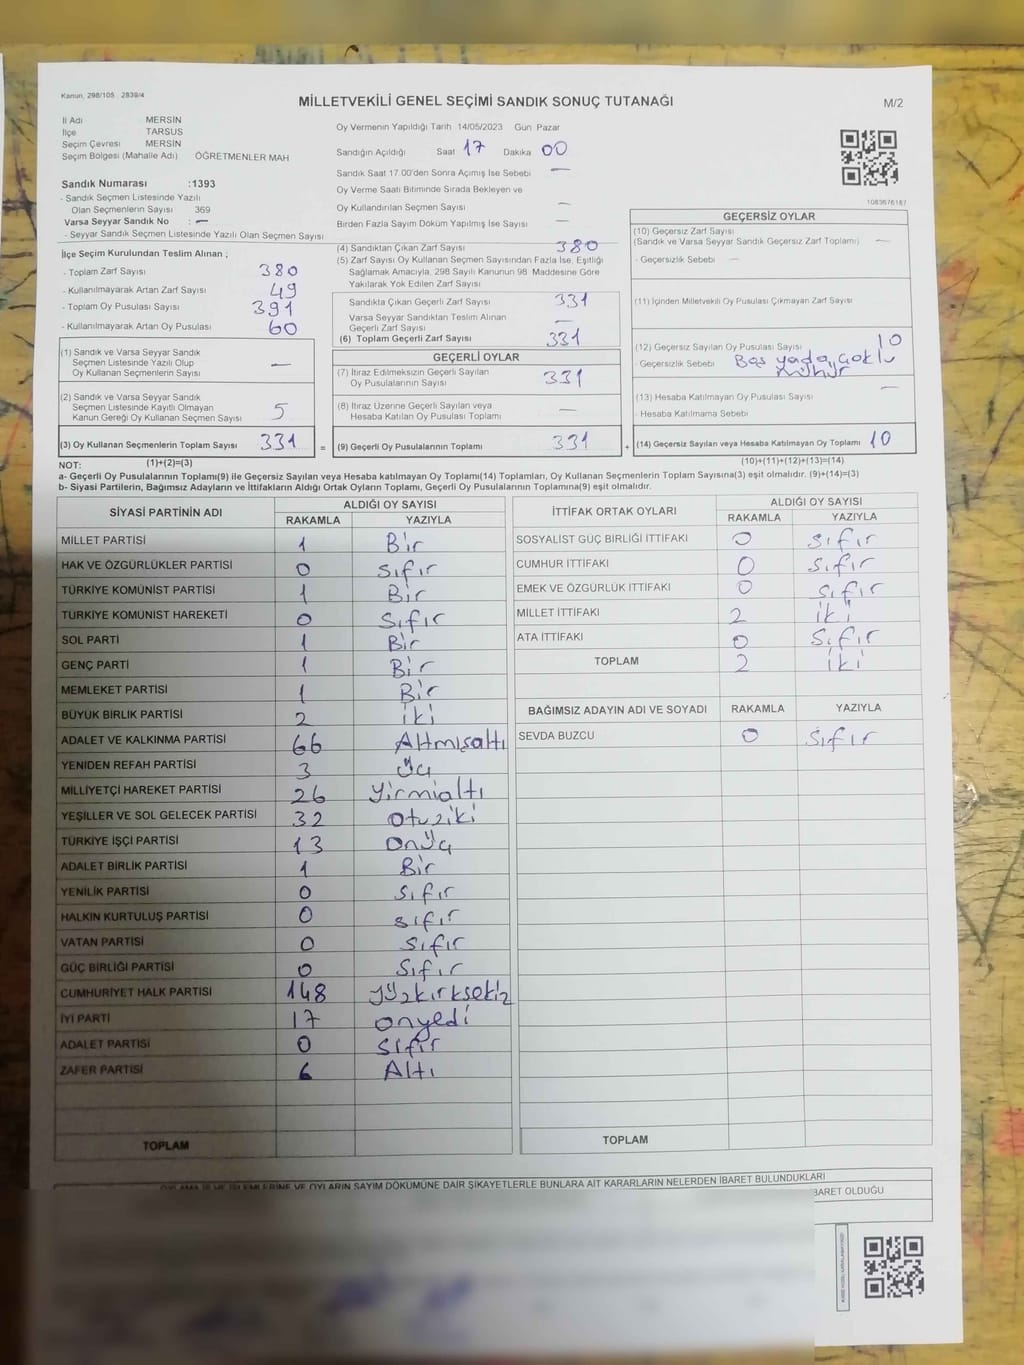 Kanun, 298/105 2839/4
MİLLETVEKİLİ GENEL SEÇİMİ SANDIK SONUÇ TUTANAĞI
M/2
İl Adı MERSİN
İlçe TARSUS
Seçim Çevresi MERSİN
Seçim Bölgesi (Mahalle Adı) ÖĞRETMENLER MAH
Oy Vermenin Yapıldığı Tarih 14/05/2023 Gün Pazar
Sandığın Açıldığı Saat 17 Dakika 00
Sandık Saat 17.00'den Sonra Açımış İse Sebebi —
Oy Verme Saati Bitiminde Sırada Bekleyen ve
Oy Kullandırılan Seçmen Sayısı —
Birden Fazla Sayım Döküm Yapılmış İse Sayısı —
1083676187
Sandık Numarası :1393
- Sandık Seçmen Listesinde Yazılı
Olan Seçmenlerin Sayısı 369
Varsa Seyyar Sandık No : —
- Seyyar Sandık Seçmen Listesinde Yazılı Olan Seçmen Sayısı
İlçe Seçim Kurulundan Teslim Alınan ;
- Toplam Zarf Sayısı 380
- Kullanılmayarak Artan Zarf Sayısı 49
- Toplam Oy Pusulası Sayısı 391
- Kullanılmayarak Artan Oy Pusulası 60
(1) Sandık ve Varsa Seyyar Sandık
Seçmen Listesinde Yazılı Olup
Oy Kullanan Seçmenlerin Sayısı —
(2) Sandık ve Varsa Seyyar Sandık
Seçmen Listesinde Kayıtlı Olmayan
Kanun Gereği Oy Kullanan Seçmen Sayısı 5
(3) Oy Kullanan Seçmenlerin Toplam Sayısı 331 =
(4) Sandıktan Çıkan Zarf Sayısı 380
(5) Zarf Sayısı Oy Kullanan Seçmen Sayısından Fazla İse, Eşitliği
Sağlamak Amacıyla, 298 Sayılı Kanunun 98 Maddesine Göre
Yakılarak Yok Edilen Zarf Sayısı
Sandıkta Çıkan Geçerli Zarf Sayısı 331
Varsa Seyyar Sandıktan Teslim Alınan
Geçerli Zarf Sayısı —
(6) Toplam Geçerli Zarf Sayısı 331
GEÇERLİ OYLAR
(7) İtiraz Edilmeksizin Geçerli Sayılan
Oy Pusulasının Sayısı 331
(8) İtiraz Üzerine Geçerli Sayılan veya
Hesaba Katılan Oy Pusulası Toplamı —
(9) Geçerli Oy Pusulalarının Toplamı 331 +
GEÇERSİZ OYLAR
(10) Geçersiz Zarf Sayısı
(Sandık ve Varsa Seyyar Sandık Geçersiz Zarf Toplamı) —
- Geçersizlik Sebebi —
(11) İçinden Milletvekili Oy Pusulası Çıkmayan Zarf Sayısı
(12) Geçersiz Sayılan Oy Pusulası Sayısı 10
- Geçersizlik Sebebi Boş yada çoklu
mühür
(13) Hesaba Katılmayan Oy Pusulası Sayısı —
- Hesaba Katılmama Sebebi
(14) Geçersiz Sayılan veya Hesaba Katılmayan Oy Toplamı 10
NOT: (1)+(2)=(3)
(10)+(11)+(12)+(13)=(14)
a- Geçerli Oy Pusulalarının Toplamı(9) ile Geçersiz Sayılan veya Hesaba katılmayan Oy Toplamı(14) Toplamları, Oy Kullanan Seçmenlerin Toplam Sayısına(3) eşit olmalıdır. (9)+(14)=(3)
b- Siyasi Partilerin, Bağımsız Adayların ve İttifakların Aldığı Ortak Oyların Toplamı, Geçerli Oy Pusulalarının Toplamına(9) eşit olmalıdır.
SİYASİ PARTİNİN ADI ALDIĞI OY SAYISI
RAKAMLA YAZIYLA
MİLLET PARTİSİ 1 Bir
HAK VE ÖZGÜRLÜKLER PARTİSİ 0 Sıfır
TÜRKİYE KOMÜNİST PARTİSİ 1 Bir
TÜRKİYE KOMÜNİST HAREKETİ 0 Sıfır
SOL PARTİ 1 Bir
GENÇ PARTİ 1 Bir
MEMLEKET PARTİSİ 1 Bir
BÜYÜK BİRLİK PARTİSİ 2 iki
ADALET VE KALKINMA PARTİSİ 66 Altmışaltı
YENİDEN REFAH PARTİSİ 3 Üç
MİLLİYETÇİ HAREKET PARTİSİ 26 yirmialtı
YEŞİLLER VE SOL GELECEK PARTİSİ 32 otuziki
TÜRKİYE İŞÇİ PARTİSİ 13 onüç
ADALET BİRLİK PARTİSİ 1 Bir
YENİLİK PARTİSİ 0 Sıfır
HALKIN KURTULUŞ PARTİSİ 0 sıfır
VATAN PARTİSİ 0 Sıfır
GÜÇ BİRLİĞİ PARTİSİ 0 Sıfır
CUMHURİYET HALK PARTİSİ 148 yüzkırksekiz
İYİ PARTİ 17 onyedi
ADALET PARTİSİ 0 sıfır
ZAFER PARTİSİ 6 Altı
TOPLAM
İTTİFAK ORTAK OYLARI ALDIĞI OY SAYISI
RAKAMLA YAZIYLA
SOSYALİST GÜÇ BİRLİĞİ İTTİFAKI 0 sıfır
CUMHUR İTTİFAKI 0 Sıfır
EMEK VE ÖZGÜRLÜK İTTİFAKI 0 sıfır
MİLLET İTTİFAKI 2 iki
ATA İTTİFAKI 0 Sıfır
TOPLAM 2 iki
BAĞIMSIZ ADAYIN ADI VE SOYADI RAKAMLA YAZIYLA
SEVDA BUZCU 0 sıfır
TOPLAM
OYLAMA İŞ VE İŞLEMLERİNE VE OYLARIN SAYIM DÖKÜMÜNE DAİR ŞİKAYETLERLE BUNLARA AİT KARARLARIN NELERDEN İBARET BULUNDUKLARI
BARET OLDUĞU